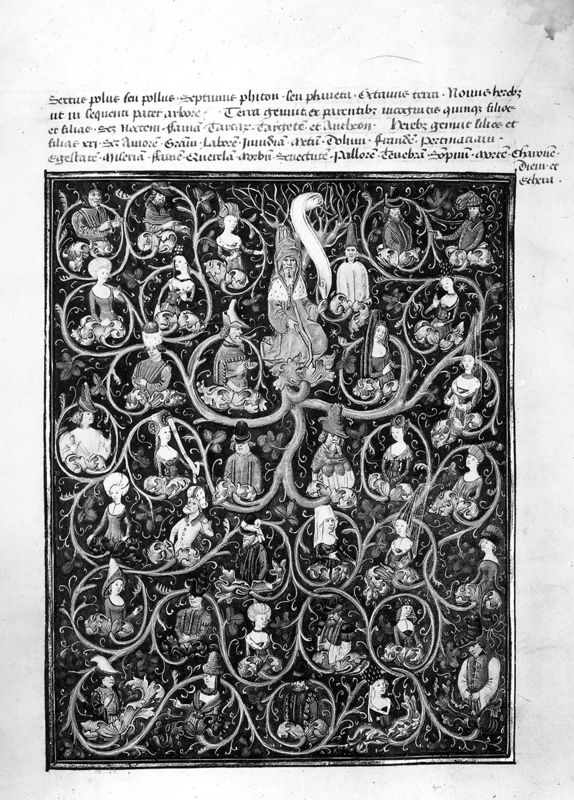 Sextus polus seu pollus · Septimus phiton · seu phaneta · Octauus terra · Nonus herebꝰ
ut in sequenti patet arbore · Terra genuit ex parentibꝫ incognitis quinqꝫ filios
et filias · Scz Noctem · famā Tartarū · Targetē et Antheon · Herebꝰ genuit filios et
filias xxi · Scz Amorē Grām · Laborē Inuidiā Metū · Dolum · fraudē pertinatiam ·
Egestatē · Miseriā · famē Querelā · Morbū · Senectutē · Pallorē Tenebrā Sōpnū · Mortē · Charontē ·
Diem et
Ethera ·